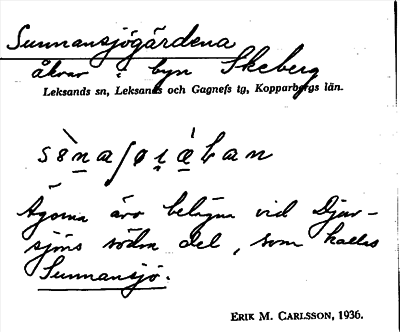 Sunnansjögärdena
åkrar i byn Skeberg
Leksands sn, Leksands och Gagnefs tg, Kopparbergs län.
Ägorna äro belägna vid Djur-
sjöns södra del, som kallas
Sunnansjö.
ERIK M. CARLSSON, 1936.